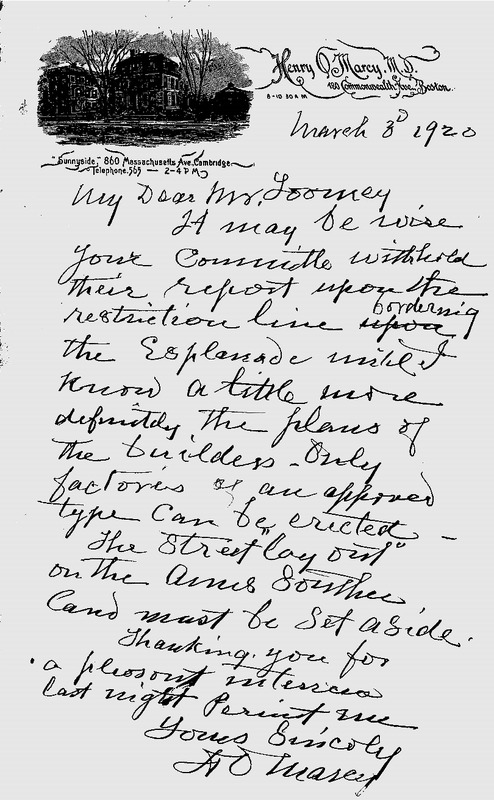 Henry O. Marcy, M.D.
180 Commonwealth Ave., Boston.
8-10.30 A M
March 3d 1920
"Sunnyside," 860 Massachusetts Ave. Cambridge
Telephone. 565 — 2-4 P M
My Dear Mr. Toomey
It may be wise
your Committee withhold
their report upon the
restriction line upon bordering
the Esplanade until I
know a little more
definitely the plans of
the builders - Only
factories of an approved
type can be erected -
The Street "lay out"
on the Ames
land must be set aside.
Thanking you for
a pleasant interview
last night Permit me
Yours Sincerly
H O Marcy